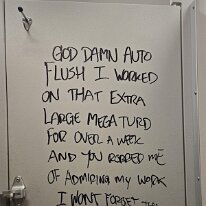 GOD DAMN AUTO
FLUSH I WORKED
ON THAT EXTRA
LARGE MEGA TURD
FOR OVER A WEEK
AND YOU ROBBED ME
OF ADMIRING MY WORK
I WONT FORGET